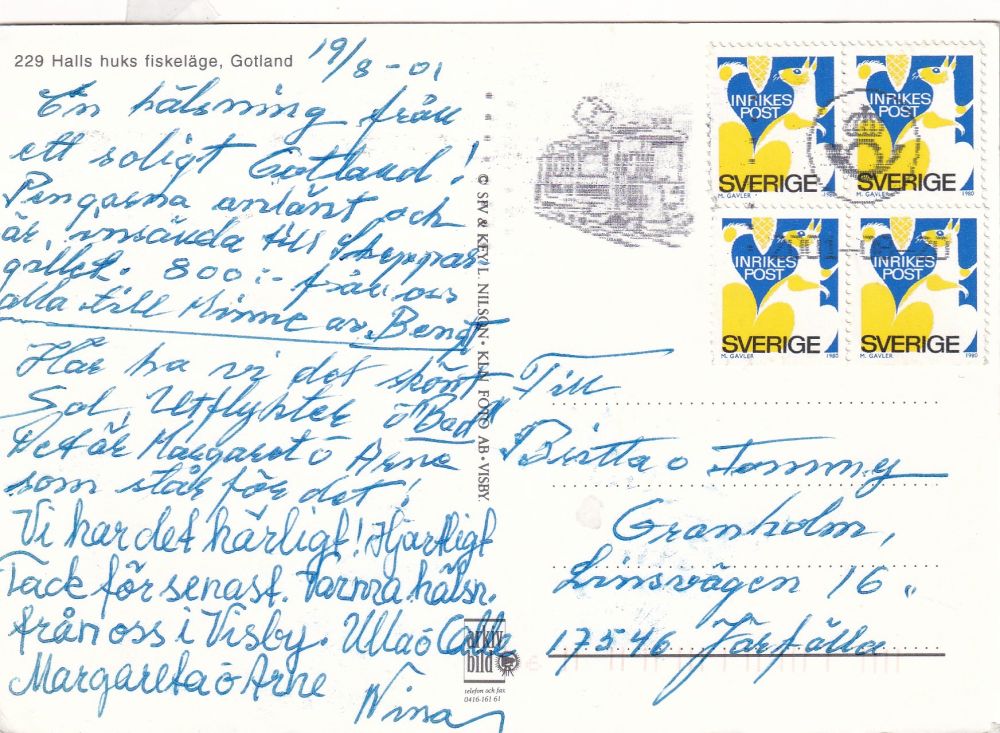 229 Halls huks fiskeläge, Gotland
19/8-01
En hälsning från
ett soligt Gotland!
Pengarna anlänt och
är insända till
gillet. 800:- från oss
alla till Minne av Bengt
Här ha vi det skönt
Sol, Utflykter o "Bad"
Det är Margaret o Arne
som står för det!
Vi har det härligt! Hjärtligt
Tack för senast. Varma hälsn.
från oss i Visby. Ulla o Calle
Margareta o Arne
Nina
© SFV & KEY L. NILSON • KLN FOTO AB • VISBY.
arkiv
bild
telefon och fax
0416-161 61
INRIKES
POST
SVERIGE
M. GAVLER 1980
INRIKES
POST
SVERIGE
M. GAVLER 1980
INRIKES
POST
SVERIGE
M. GAVLER 1980
INRIKES
POST
SVERIGE
M. GAVLER 1980
Till
Britta o Tommy
Granholm,
Linsvägen 16.
17546 Järfälla